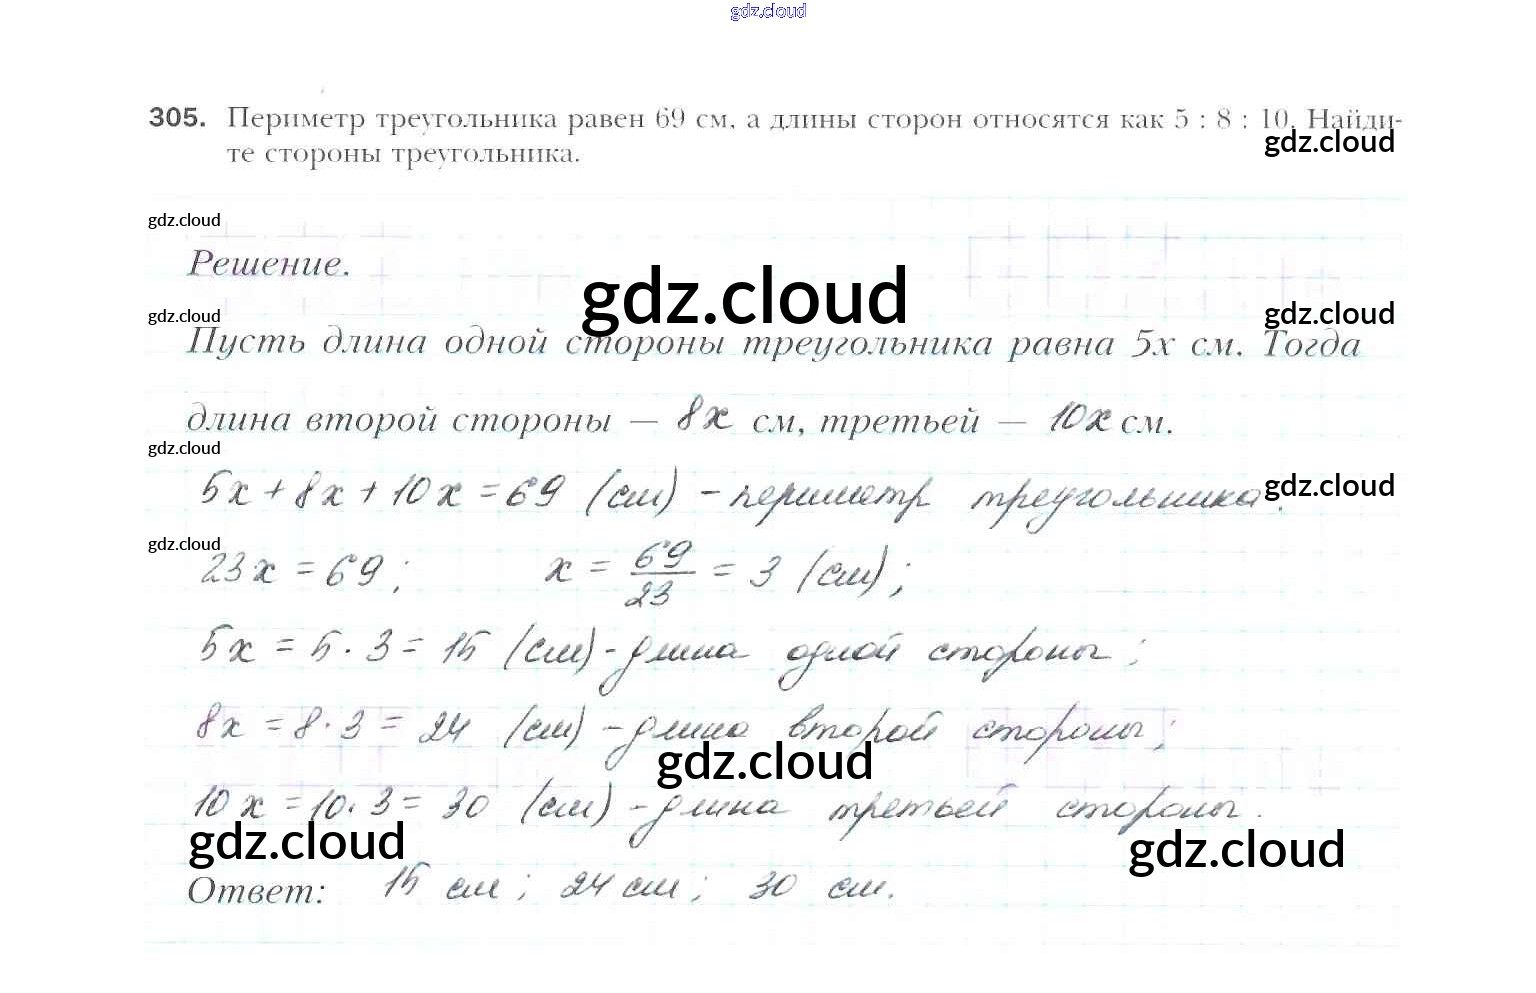 gdz.cloud
305. Периметр треугольника равен 69 см, а длины сторон относятся как 5 : 8 : 10. Найди-
gdz.cloud
те стороны треугольника.
gdz.cloud
Решение.
gdz.cloud
gdz.cloud
gdz.cloud
Пусть длина одной стороны треугольника равна 5x см. Тогда
длина второй стороны — 8x см, третьей — 10x см.
gdz.cloud
5x + 8x + 10x = 69 (см) - периметр треугольника.
gdz.cloud
gdz.cloud
23x = 69; x = 69/23 = 3 (см);
5x = 5 · 3 = 15 (см) - длина одной стороны;
8x = 8 · 3 = 24 (см) - длина второй стороны;
gdz.cloud
10x = 10 · 3 = 30 (см) - длина третьей стороны.
gdz.cloud
gdz.cloud
Ответ: 15 см; 24 см; 30 см.